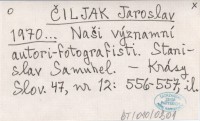 ČILJAK Jaroslav
1970... Naši významní
autori-fotografisti. Stani-
slav Samuhel. – Krásy
Slov. 47, nr 12: 556-557, il.